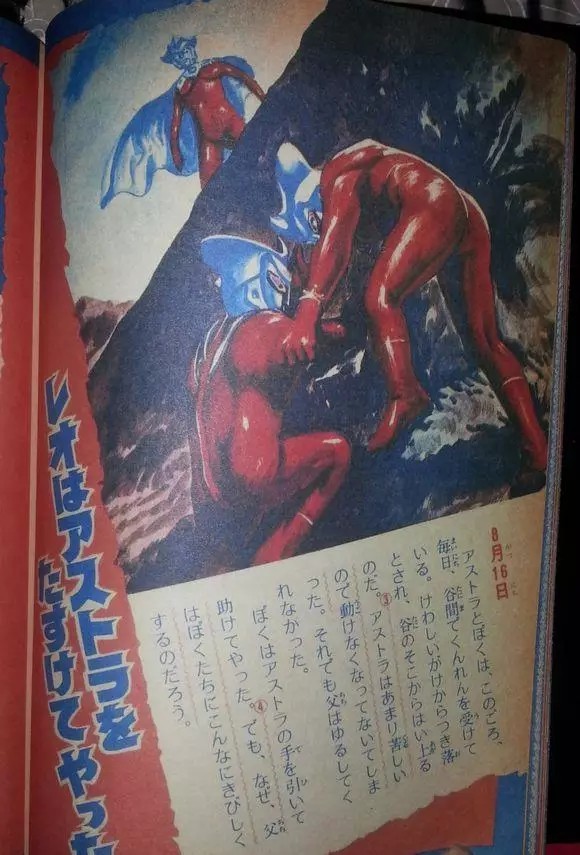 レオはアストラを
たすけてやった
8月16日
アストラとぼくは、このごろ、
毎日、谷間でくんれんを受けて
いる。けわしいがけからつき落
とされ、谷のそこからはい上る
のだ。③アストラはあまり苦しい
ので動けなくなってないてしま
った。それでも父はゆるしてく
れなかった。
ぼくはアストラの手を引いて
助けてやった。④でも、なぜ、父
はぼくたちにこんなにきびしく
するのだろう。